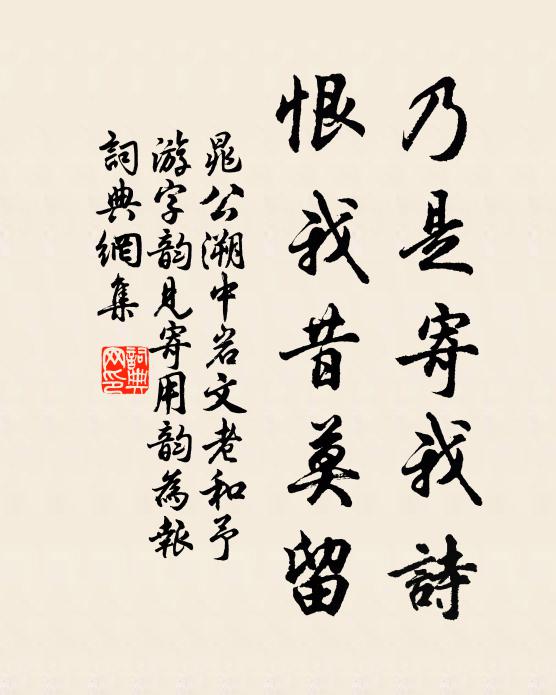 乃是寄我詩
恨我昔莫留
晁公溯中岩文老和予
游字韵見寄用韵為報
詞典網集
詞典网印